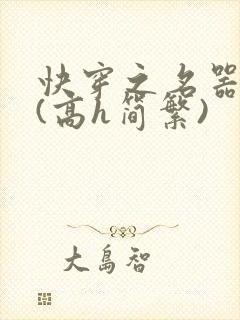 快穿之名器
(高h简繁)
大岛智